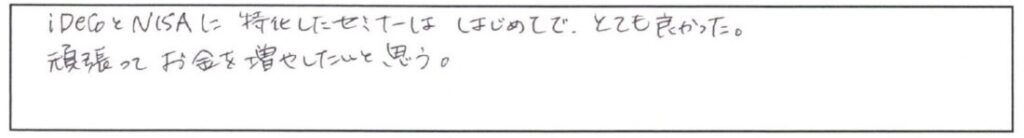 iDeCoとNISAに特化したセミナーは はじめてで、とても良かった。
頑張って お金を増やしたいと思う。